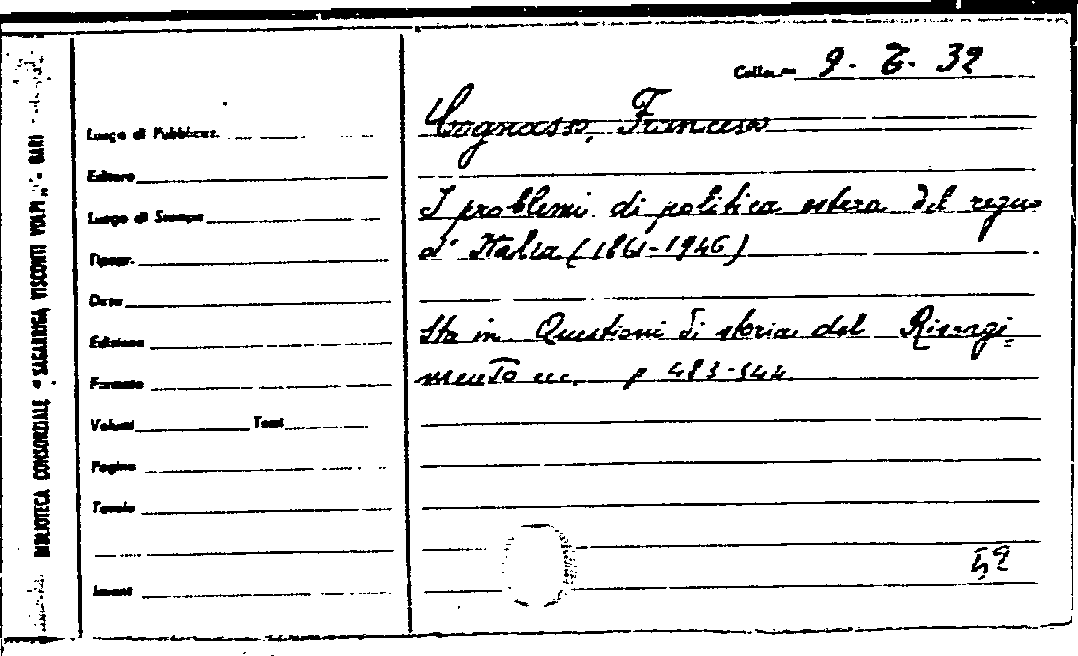 BIBLIOTECA CONSORZIALE "SAGARRIGA VISCONTI VOLPI" - BARI
Colloc.ne 9. G. 32
Luogo di Pubblicaz.
Cognasso, Francesco
Editore
Luogo di Stampa
I problemi di politica estera del regno
Tipogr.
d'Italia (1861-1946)
Data
Edizione
Sta in Questioni di storia del Risorgi=
Formato
mento ecc. p 483-544
Volumi Tomi
Pagine
Tavole
52
Invent.